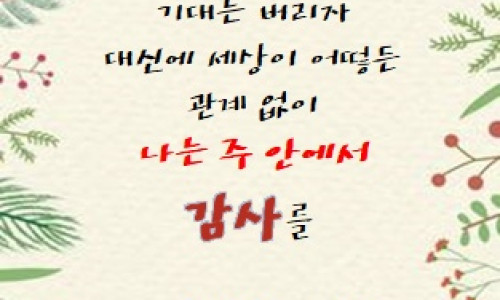 기대는 버리자
대신에 세상이 어떻든
관계 없이
나는 주 안에서
감사를